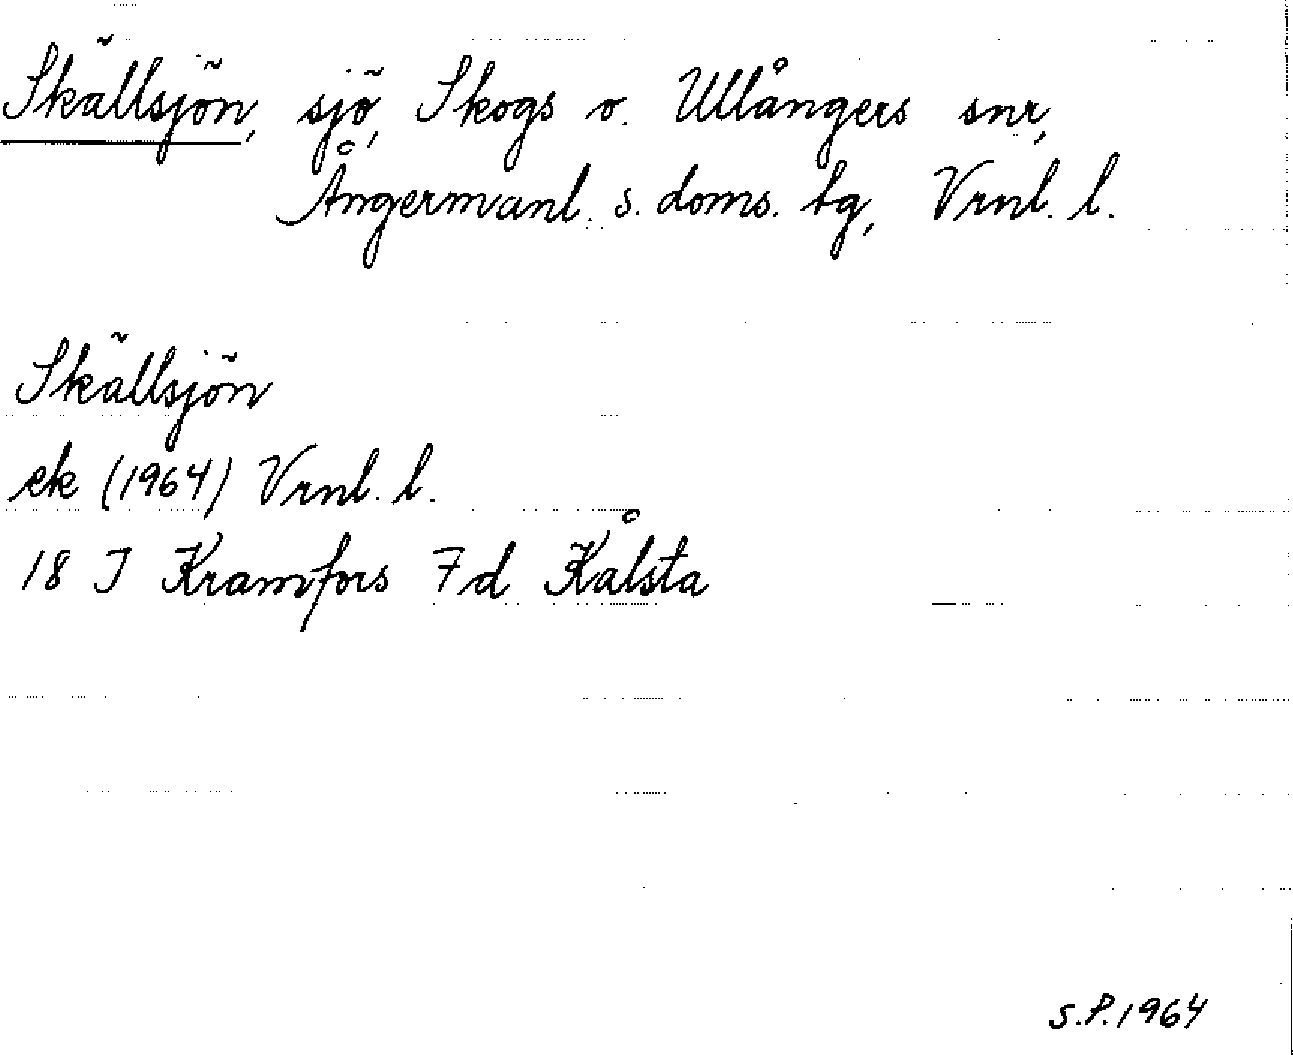 Skällsjön, sjö, Skogs o. Ullångers snr,
Ångermanl. s. doms. tg, Vrnl. l.
Skällsjön
ek (1964) Vrnl. l.
18 J Kramfors 7d Kålsta
S.P. 1964